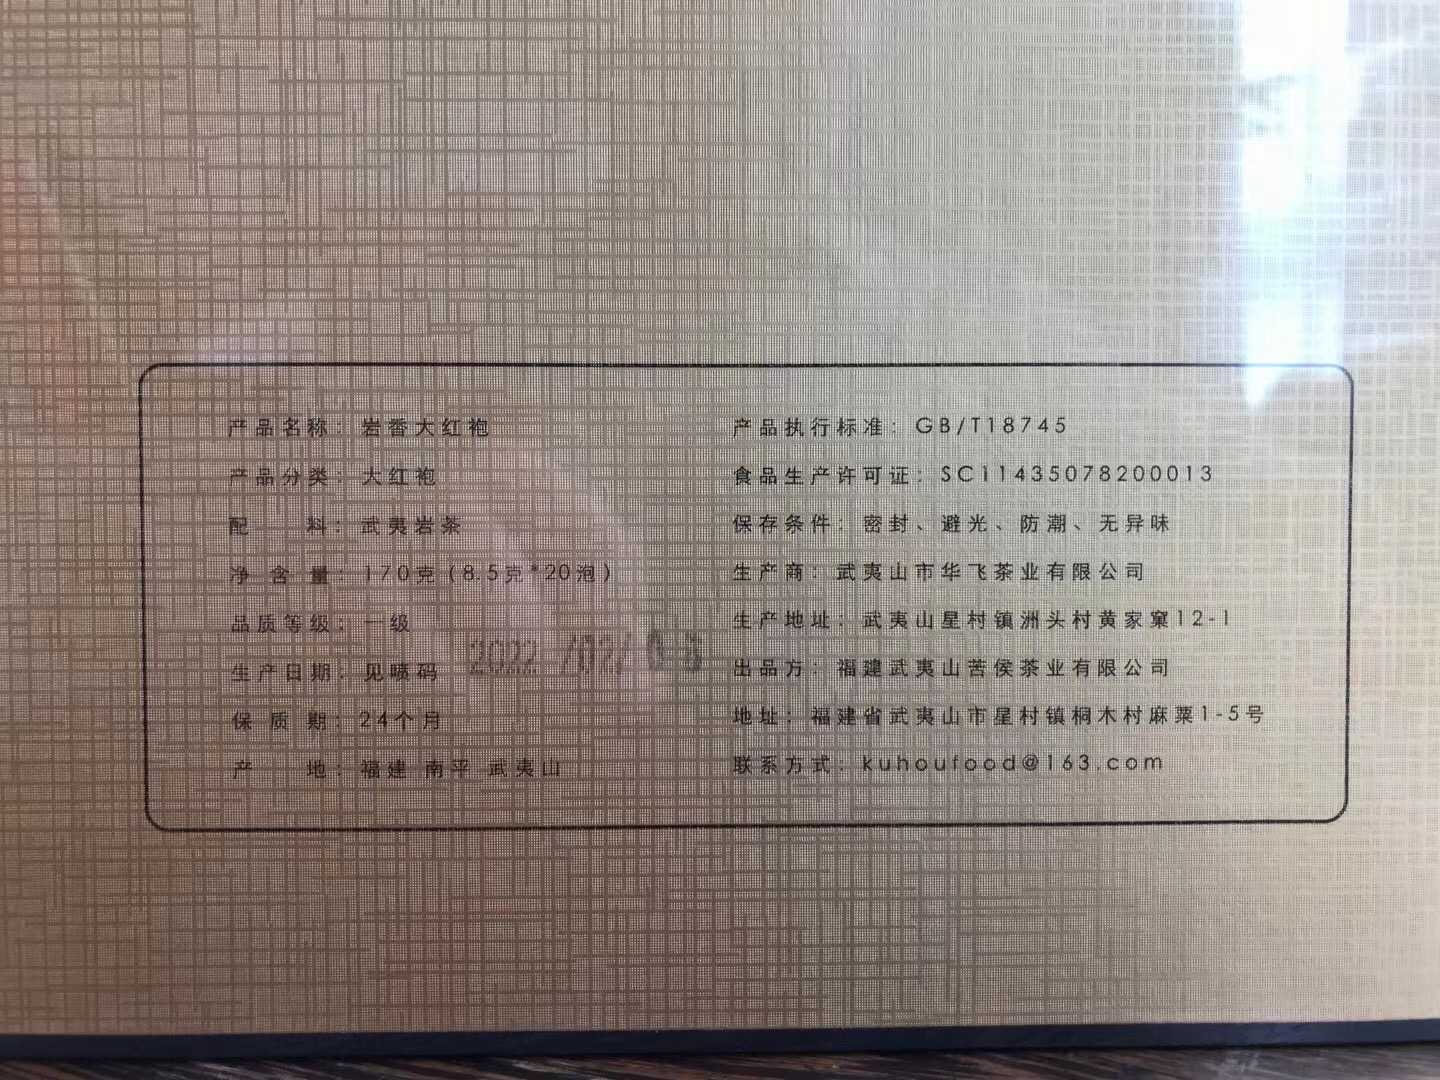 产品名称：岩香大红袍
产品分类：大红袍
配 料：武夷岩茶
净 含 量：170克(8.5克*20泡)
品质等级：一级
生产日期：见喷码 2022/02/
保 质 期：24个月
产 地：福建 南平 武夷山
产品执行标准：GB/T18745
食品生产许可证：SC11435078200013
保存条件：密封、避光、防潮、无异味
生产商：武夷山市华飞茶业有限公司
生产地址：武夷山星村镇洲头村黄家窠12-1
出品方：福建武夷山苦侯茶业有限公司
地址：福建省武夷山市星村镇桐木村麻粟1-5号
联系方式：kuhoufood@163.com